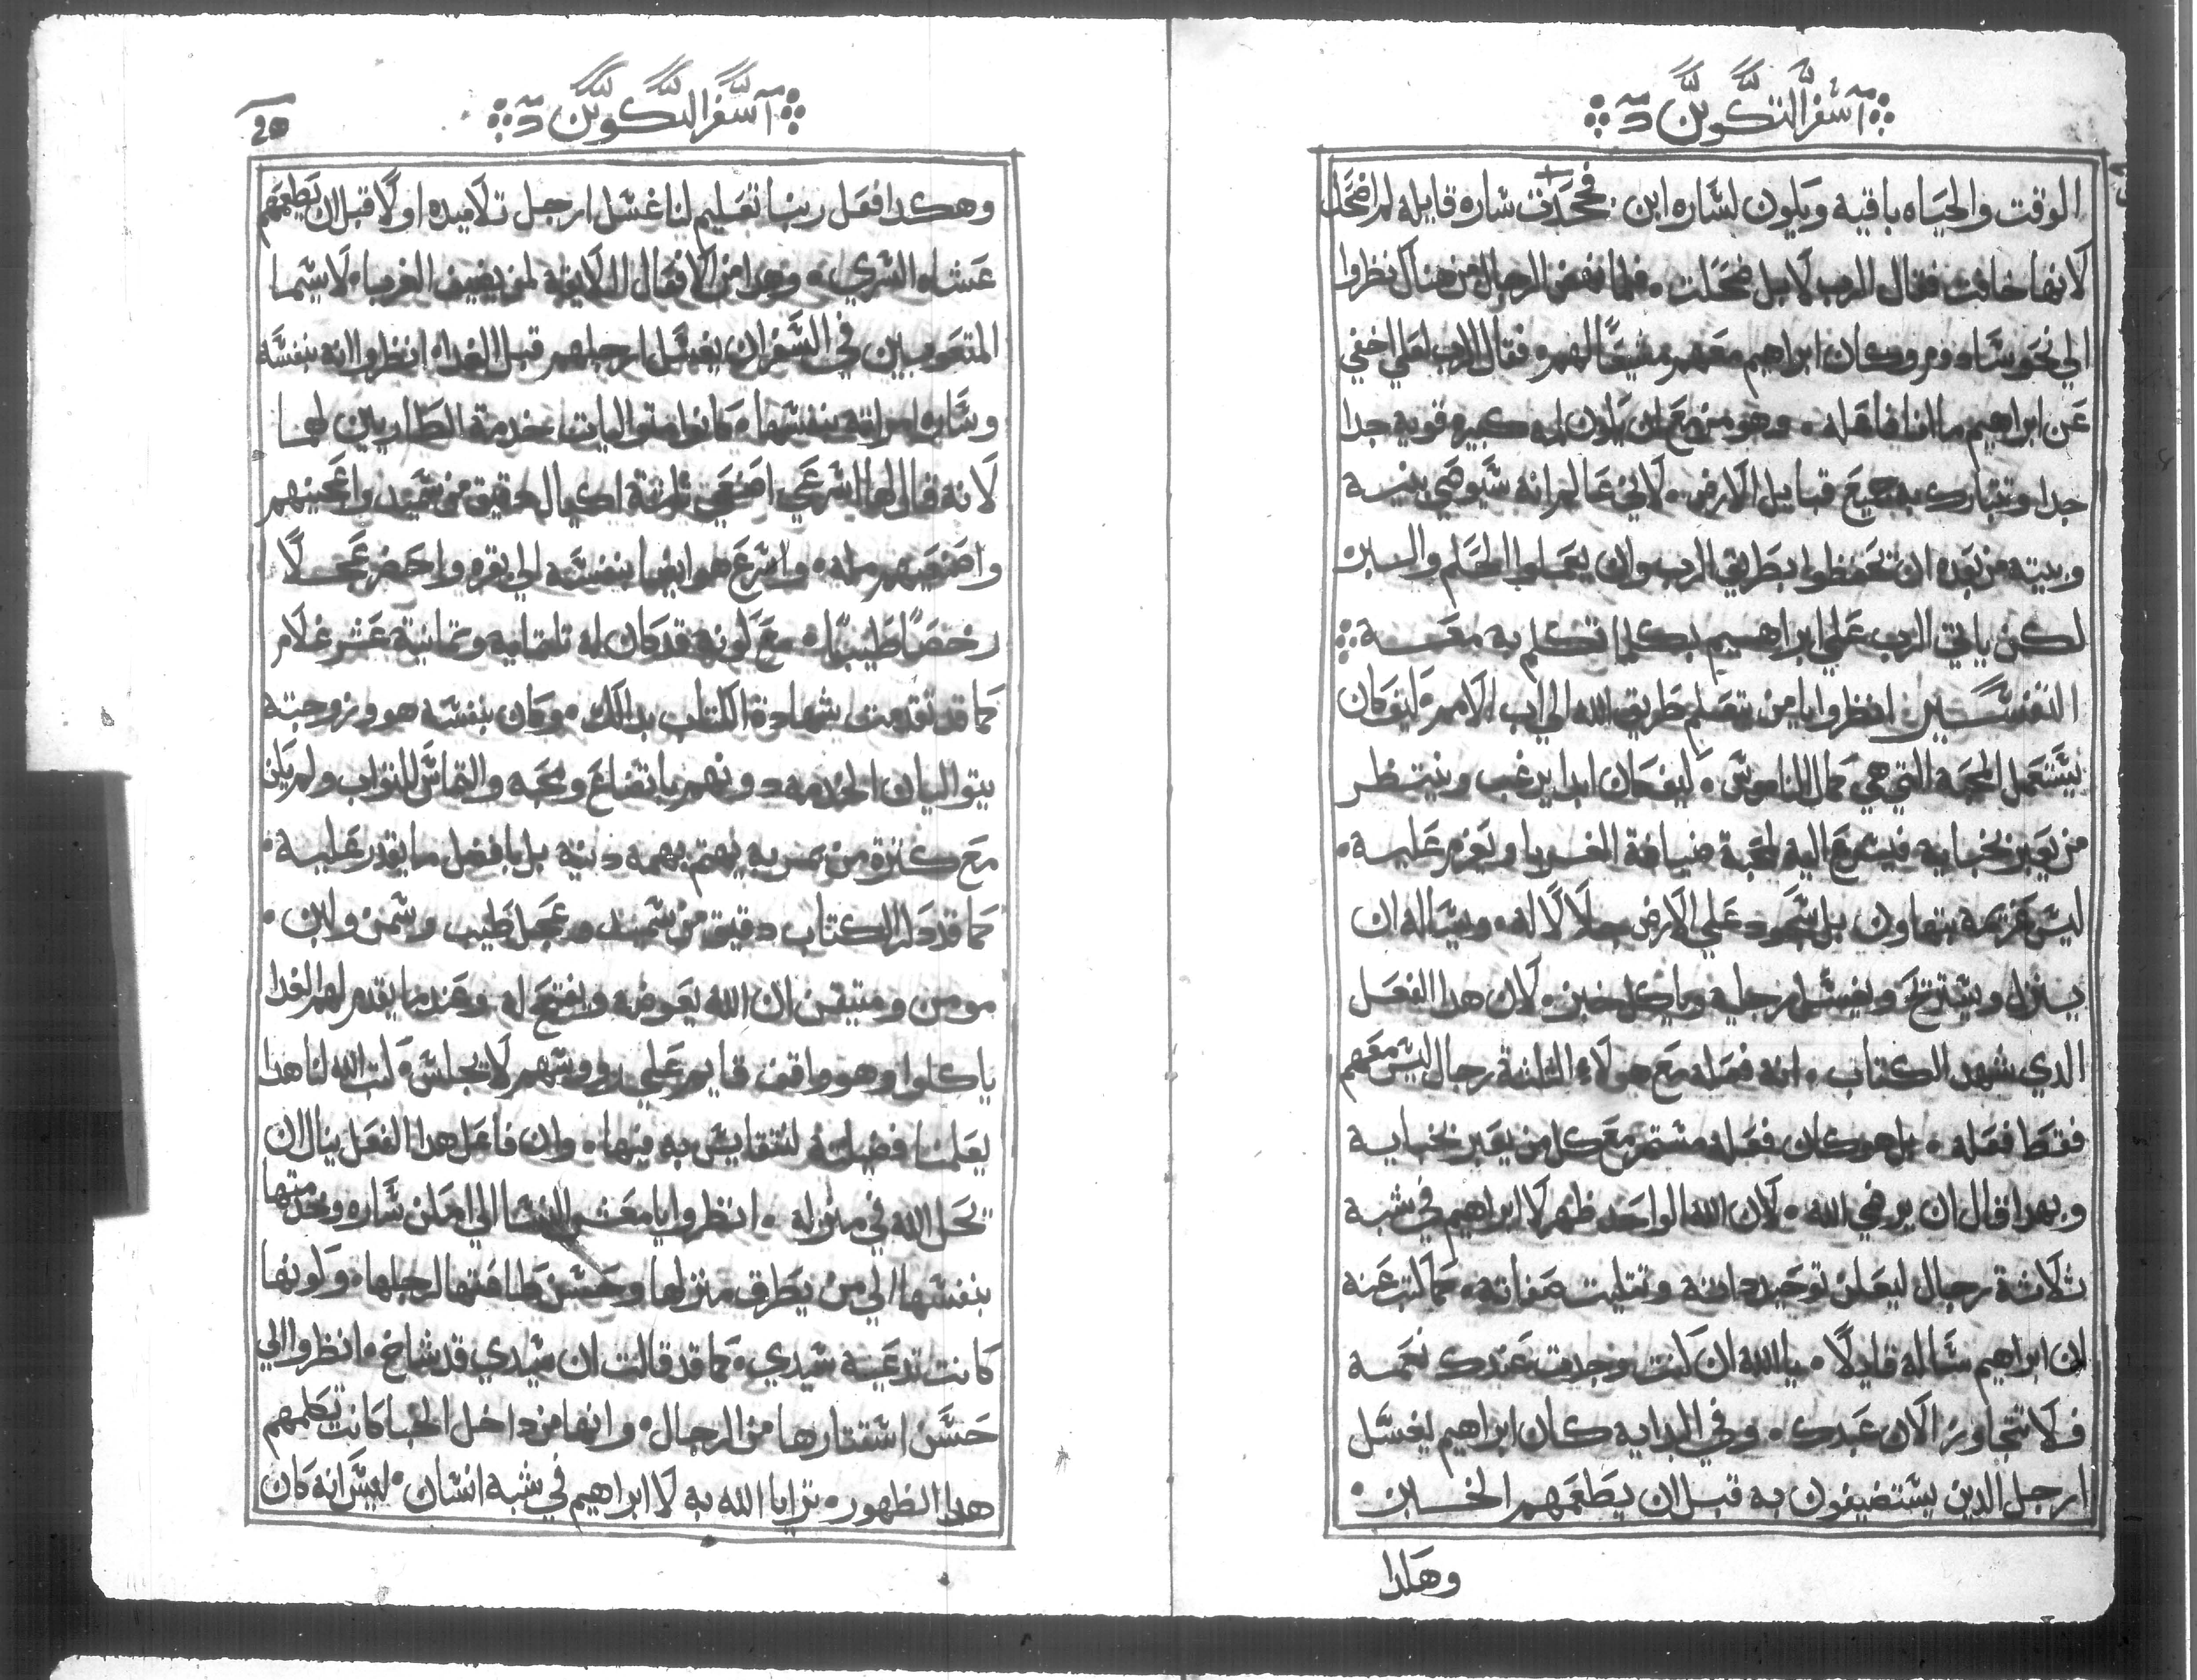 سفر التكوين
الوقت والحياه باقيه ويكون لساره ابن فجحدت ساره قايله لم اضحك
لانها خافت فقال الرب لا بل ضحكت فلما نهض الرجال من هناك نظروا
الي نحو سادوم وكان ابراهيم معهم مشيعًا لهم وفقال الرب لعلي اخفي
عن ابراهيم ما انا فاعله وهو مزمع ان يكون امه كبيره قويه جدا
جدا وتتبارك به جميع قبايل الارض لاني عالم انه سيوصي بنيه
وبيته من بعده ان تحفظوا بطريق الرب وان يعملوا الحكم والبر
لكن ياتي الرب علي ابراهيم بكلما تكلم به معه
التفسير انظروا يا من يتعلم طريق الله الي اب الامم كيف كان
يستعمل المحبة التي هي كمال الناموس كيف كان ابدا يرغب وينتظر
من يعبر بخبايه فيسرع اليه لمحبة ضيافة الغربا ويعزم عليه
ليس عزمه بتهاون بل بسجود علي الارض جلالا له ويساله ان
ينزل ويستريح ويغسل رجليه وياكل خبز لان هدا الفعل
الدي شهد الكتاب انه فعله مع هولاء التلتة رجال ليس معهم
فقط فعله بل هو كان فعله مستمر مع كل من يعبر بخبايه
وبهدا قال ان يرضي الله لان الله الواحد ظهر لابراهيم في شبه
تلاتة رجال ليعلن توحيد داته وتتليت صفاته كما كتب عنه
ان ابراهيم ساله قايلًا يا الله ان كنت وجدت عندك نعمه
فلا تتجاوز الان عبدك وفي البدايه كان ابراهيم يغسل
ارجل الدين يستضيفون به قبل ان يطعمهم الخبز
وهكدا
سفر التكوين
20
وهكدا فعل ربنا تعليم لنا غسل ارجل تلاميده اولًا قبل ان يطعمهم
عشاه السري وهدا من الافعال اللايقة لمن يضيف الغربا لا سيما
المتعوبين في السفر ان يغسل ارجلهم قبل الغدا انظروا انه بنفسه
وساره امراته بنفسها كانوا متواليات بخدمة الطاريين لهما
لانه قال لها اسرعي اصنعي تلتة اكيال دقيق من سميد واعجنيهم
واصنعيهم مله واسرع هو ايضا بنفسه الي بقره واحضر عجلًا
رخصًا طيبًا مع كونه قد كان له تلتمايه وتمانية عشر غلام
كما قد تقدمت شهادة الكتاب بدالك وكان بنفسه هو وزوجته
يتواليان الخدمه دونهم باتضاع ومحبه والتماس للتواب ولم يكن
مع كترة من يمر به يهتم بهمه دنيه بل بافضل ما يقدر عليه
كما قد دكر الكتاب دقيق من سميد وعجل طيب وسمن ولبن
مومن ومتيقن ان الله يعوضه ويفتح له وعندما يقدم لهم الغدا
ياكلوا وهو واقف قايم علي رووسهم لا يجلس كتب الله لنا هدا
يعلمنا فضيلة لنتقايس به فيها وان فاعل هدا الفعل ينال ان
يحل الله في منزله انظروا يا معشر النسا الي امكن ساره وخدمتها
بنفسها الي من يطرق منزلها وحسن طاعتها لرجلها وكونها
كانت تدعيه سيدي كما قد قالت ان سيدي قد شاخ انظروا الي
حسن استتارها من الرجال وانها من داخل الخبا كانت تكلمهم
هدا الظهور ترايا الله به لابراهيم في شبه انسان ليس انه كان